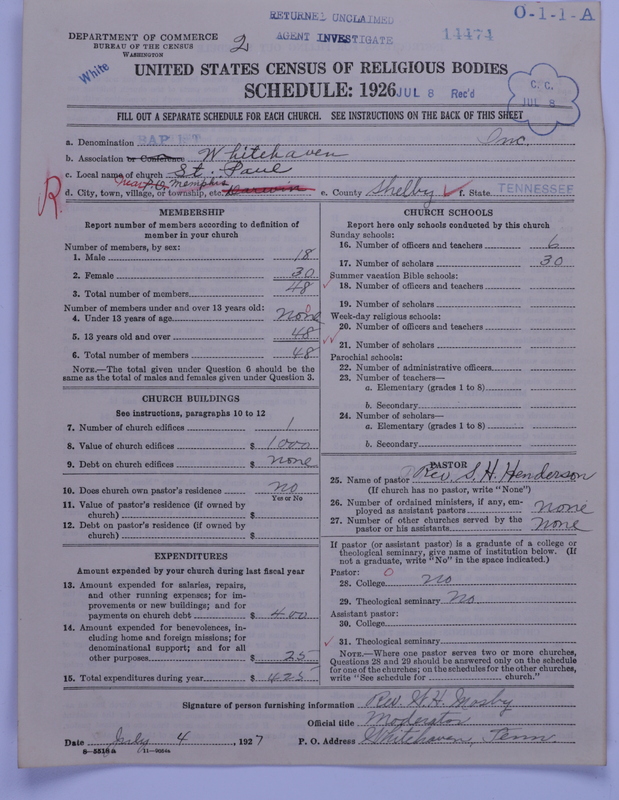 RETURNED UNCLAIMED
AGENT INVESTIGATE
14474
O-1-1-A
DEPARTMENT OF COMMERCE
BUREAU OF THE CENSUS
WASHINGTON
2
White
UNITED STATES CENSUS OF RELIGIOUS BODIES
SCHEDULE: 1926
JUL 8 Rec'd
C. C.
JUL 8
FILL OUT A SEPARATE SCHEDULE FOR EACH CHURCH. SEE INSTRUCTIONS ON THE BACK OF THIS SHEET
a. Denomination BAPTIST Inc.
b. Association or Conference Whitehaven
c. Local name of church St. Paul
near P.O. Memphis
d. City, town, village, or township, etc. Darwin e. County Shelby f. State TENNESSEE
R
MEMBERSHIP
Report number of members according to definition of
member in your church
Number of members, by sex:
1. Male 18
2. Female 30
3. Total number of members 48
Number of members under and over 13 years old:
4. Under 13 years of age none
5. 13 years old and over 48
6. Total number of members 48
NOTE.—The total given under Question 6 should be the
same as the total of males and females given under Question 3.
CHURCH BUILDINGS
See instructions, paragraphs 10 to 12
7. Number of church edifices 1
8. Value of church edifices $ 1000
9. Debt on church edifices $ none
10. Does church own pastor's residence no
Yes or No
11. Value of pastor's residence (if owned by
church) $
12. Debt on pastor's residence (if owned by
church) $
EXPENDITURES
Amount expended by your church during last fiscal year
13. Amount expended for salaries, repairs,
and other running expenses; for im-
provements or new buildings; and for
payments on church debt $ 400
14. Amount expended for benevolences, in-
cluding home and foreign missions; for
denominational support; and for all
other purposes $ 25
15. Total expenditures during year $ 425
CHURCH SCHOOLS
Report here only schools conducted by this church
Sunday schools:
16. Number of officers and teachers 6
17. Number of scholars 30
Summer vacation Bible schools:
18. Number of officers and teachers
19. Number of scholars
Week-day religious schools:
20. Number of officers and teachers
21. Number of scholars
Parochial schools:
22. Number of administrative officers
23. Number of teachers—
a. Elementary (grades 1 to 8)
b. Secondary
24. Number of scholars—
a. Elementary (grades 1 to 8)
b. Secondary
PASTOR
25. Name of pastor Rev. S. H. Henderson
(If church has no pastor, write "None")
26. Number of ordained ministers, if any, em-
ployed as assistant pastors none
27. Number of other churches served by the
pastor or his assistants none
If pastor (or assistant pastor) is a graduate of a college or
theological seminary, give name of institution below. (If
not a graduate, write "No" in the space indicated.)
Pastor: 0
28. College no
29. Theological seminary No
Assistant pastor:
30. College
31. Theological seminary
NOTE.—Where one pastor serves two or more churches,
Questions 28 and 29 should be answered only on the schedule
for one of the churches; on the schedules for the other churches,
write "See schedule for church."
Signature of person furnishing information Rev. H. Mosby
Official title Moderator
Date July 4, 1927 P. O. Address Whitehaven, Tenn.
8-5518a 11-9084a